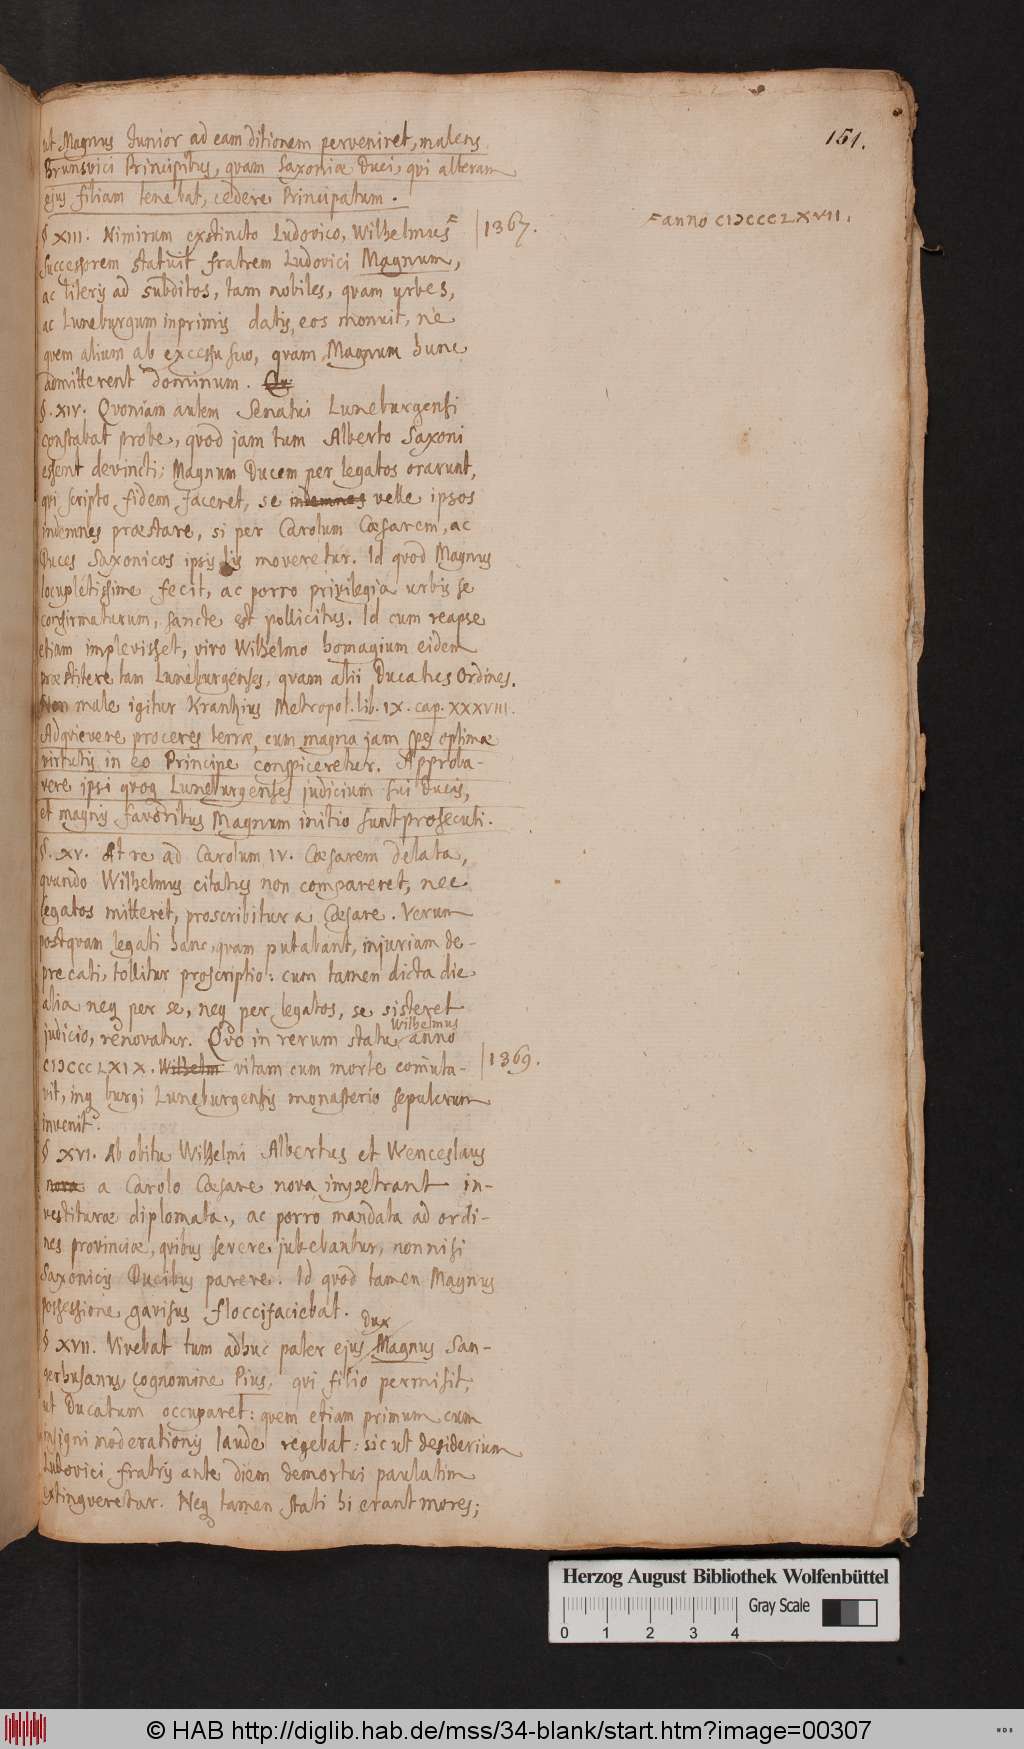 151.
ut Magnus Junior ad eam ditionem perveniret, malens
Brunsvici Principibus, qvam Saxoniæ Duci, qvi alteram
ejus filiam tenebat, cedere Principatum.
§ XIII. Nimirum exstincto Ludovico, Wilhelmus F |1367. F anno CIƆCCCLXVII.
successorem statuit fratrem Ludovici Magnum,
ac literis ad subditos, tam nobiles, qvam urbes,
ac Luneburgum inprimis datis, eos monuit, ne
qvem alium ab excessu suo, qvam Magnum hunc
admitterent dominum. Qu
§. XIV. Qvoniam autem Senatui Luneburgensi
constabat probe, qvod jam tum Alberto Saxoni
essent devincti; Magnum Ducem per legatos orarunt,
qvi scripto fidem faceret, se indemnes velle ipsos
indemnes præstare, si per Carolum Cæsarem, ac
Duces Saxonicos ipsis lis moveretur. Id qvod Magnus
locupletissime fecit, ac porro privilegia urbis se
confirmaturum, sancte est pollicitus. Id cum reapse
etiam implevisset, vivo Wilhelmo homagium eidem
præstitere tam Luneburgenses, qvam alii Ducatus Ordines.
Non male igitur Krantzius Metropol. lib. IX. cap. XXXVIII.
Adqvievere proceres terræ, cum magna jam spes optimæ
virtutis in eo Principe conspiceretur. Approba-
vere ipsi qvoq Luneburgenses judicium sui Ducis,
et magnis favoribus Magnum initio sunt prosecuti.
§. XV. At re ad Carolum IV. Cæsarem delata,
qvando Wilhelmus citatus non compareret, nec
legatos mitteret, proscribitur a Cæsare. Verum
postqvam legati hanc, qvam putabant, injuriam de-
precati, tollitur proscriptio: cum tamen dicta die
alia neq per se, neq per legatos, se sisteret
judicio, renovatur. Qvo in rerum statu Wilhelmus anno
CIƆCCCLXIX. Wilhelm vitam cum morte comuta- |1369.
vit, inq burgi Luneburgensis monasterio sepulcrum
invenit.
§ XVI. Ab obitu Wilhelmi Albertus et Wenceslaus
nova a Carolo Cæsare nova impetrant in-
vestituræ diplomata, ac porro mandata ad ordi-
nes provinciæ, qvibus severe jubebantur, non nisi
Saxonicis Ducibus parere. Id qvod tamen Magnus
possessione gavisus floccifaciebat.
§ XVII. Vivebat tum adhuc pater ejus Dux Magnus San-
gerhusanus, cognomine Pius, qvi filio permisit,
ut Ducatum occuparet: qvem etiam primum cum
insigni moderationis laude regebat: sic ut desiderium
Ludovici fratris ante diem demortui paulatim
extingveretur. Neq tamen stati hi erant mores;
Herzog August Bibliothek Wolfenbüttel
Gray Scale
0 1 2 3 4
© HAB http://diglib.hab.de/mss/34-blank/start.htm?image=00307